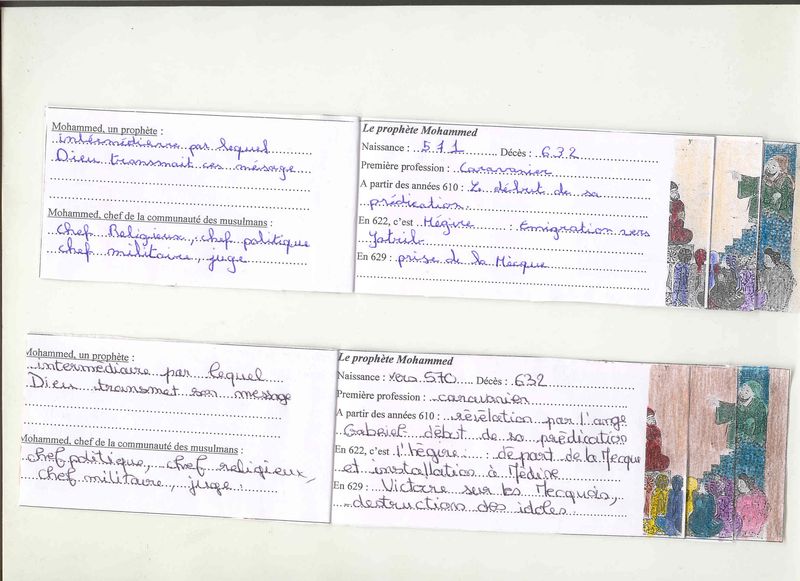 Mohammed, un prophète :
intérmédierre par lequel
Dieu transmait ces mésage
Mohammed, chef de la communauté des musulmans :
chef Religieux, chef politique
chef militaire, juge
Le prophète Mohammed
Naissance : 571 Décès : 632
Première profession : Caravanier
A partir des années 610 : Le début de sa
prédication.
En 622, c'est Hégire : émigration vers
Yatrib
En 629 : prise de la Mècque
Mohammed, un prophète :
intermédiaire par lequel
Dieu transmet son message
Mohammed, chef de la communauté des musulmans :
chef politique, chef religieux,
chef militaire, juge.
Le prophète Mohammed
Naissance : vers 570 Décès : 632
Première profession : caravanier
A partir des années 610 : révélation par l'ange
Gabriel début de sa prédication
En 622, c'est l'hégire : départ de la Mecque
et installation à Médine
En 629 : Victoire sur les Mecquois,
destruction des idoles.